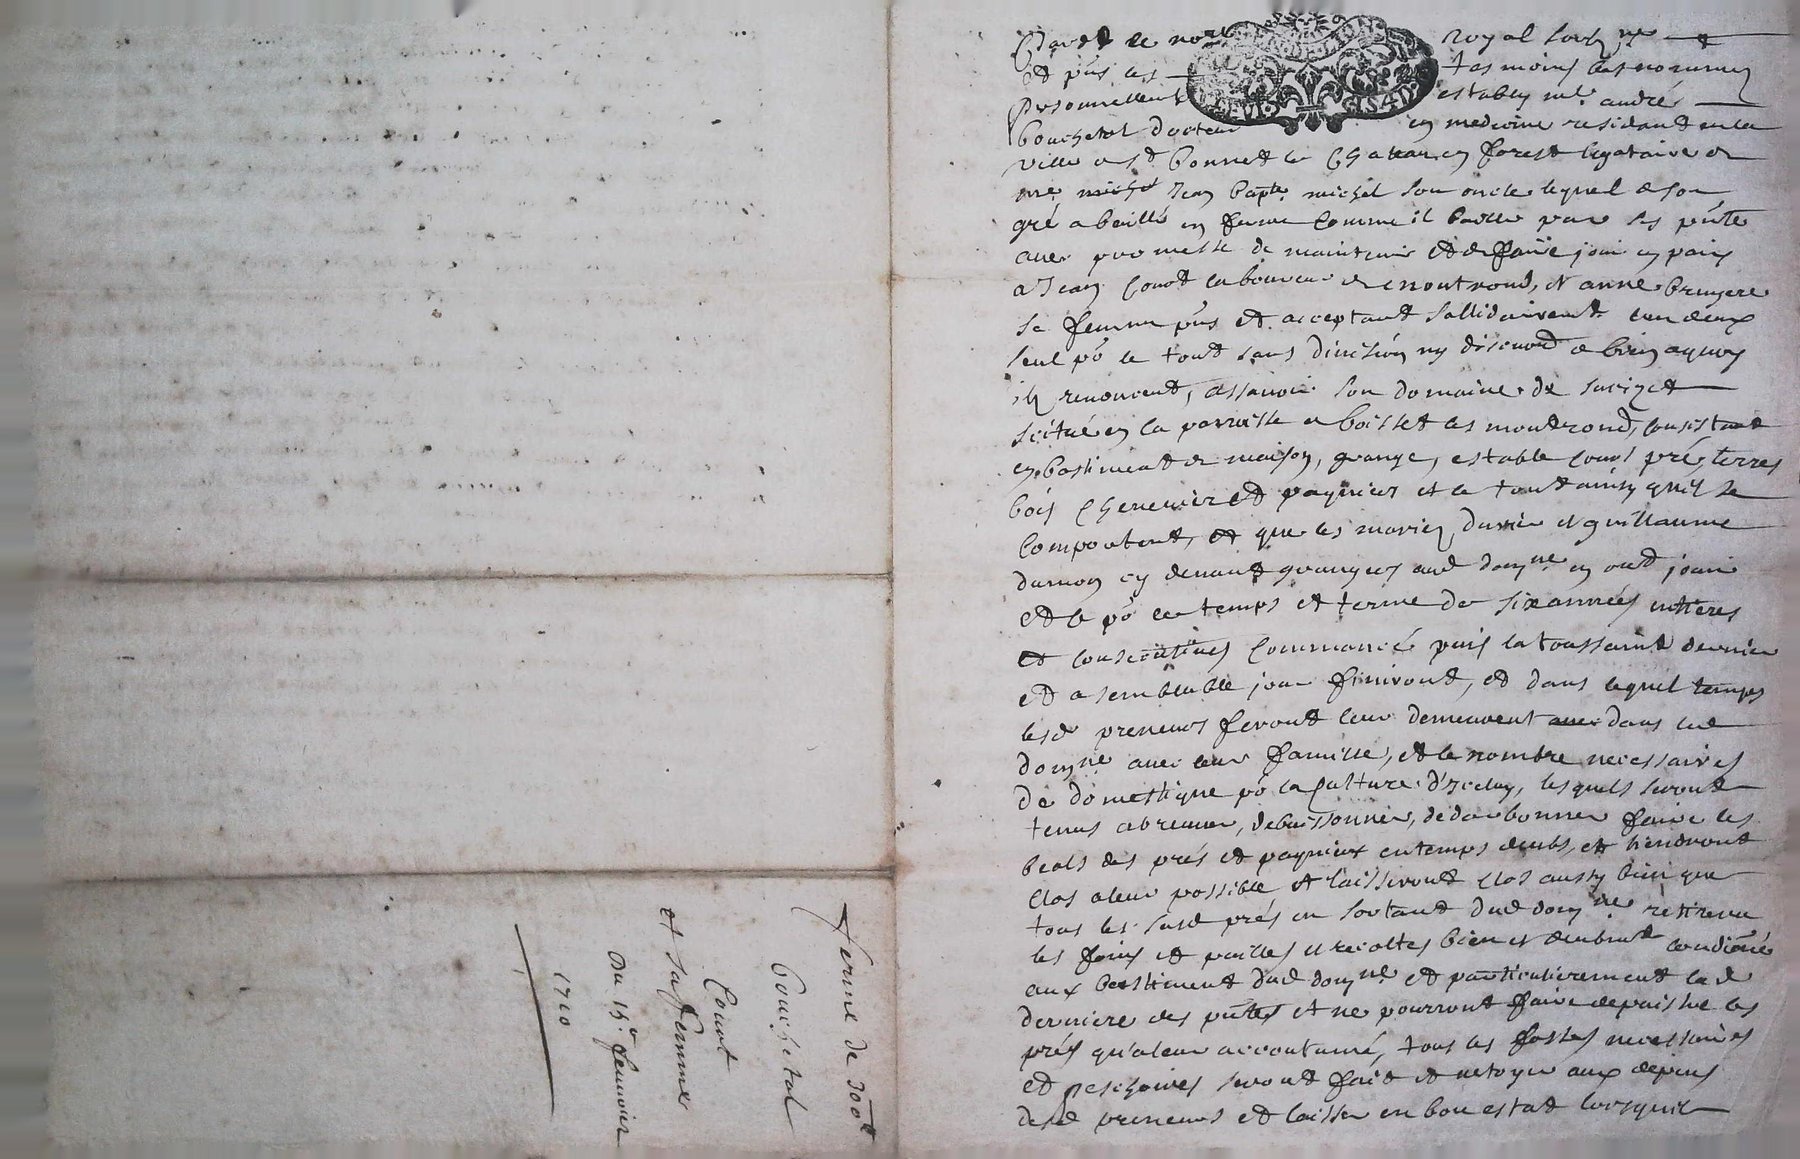 Ferme de 300#
Bouchetal
Court
et sa femme
du 15e feuvrier
1710
Pardt le nore royal soubzne
et puis les tesmoins bas nommez
personnellement estably mr. andré
bouchetal docteur en medecine residant en la
ville de st bonnet le Chateau en forest legataire de
me michel Jean bapte. michel son oncle lequel de son
gré a baillé en ferme comme il baille par ces pnte
avec promesse de maintenir et de faire jouir en paix
a Jean Court laboureur de montrond, et anne bruyere
sa femme pns et acceptant sollidairement l'un deux
seul po le tout sans division ny discution a bien
ilz renoncent, assavoir son domaine de
scitué en la parroisse de boisset les montrond, consistant
en bastiment de maison, grange, estable cour pré, terres
bois Chenevier et paquier et le tout ainsy quil se
comportent, et que les mariez et guillaume
cy devant grangers aud domne en ont joui
et ce po le temps et terme de six années entieres
et consecutives commancé puis la toussaint dernier
et a semblable jour finiront, et dans lequel temps
lesd preneurs feront leur demeurent avec dans led
domne avec leur famille, et le nombre necessaires
de domestique po la culture d'Iceluy, lesquels seront
tenus abreuver, debuissonner, faire les
beals des prés et paquiers en temps deubs, et tiendront
clos a leur possible et laisseront clos aussy bien que
tous les susd prés en sortant dud domne retireront
les foins et pailles et recoltes bien et deubmt
aux bastiment dud domne et particulierement lad
derniere des pntes et ne pourront faire depaistre les
prés qu'a leur accoutumé, tous les fossés necessaires
et peschoires seront fait et netoyer aux depens
desd preneurs et laisser en bon estat lorsquil